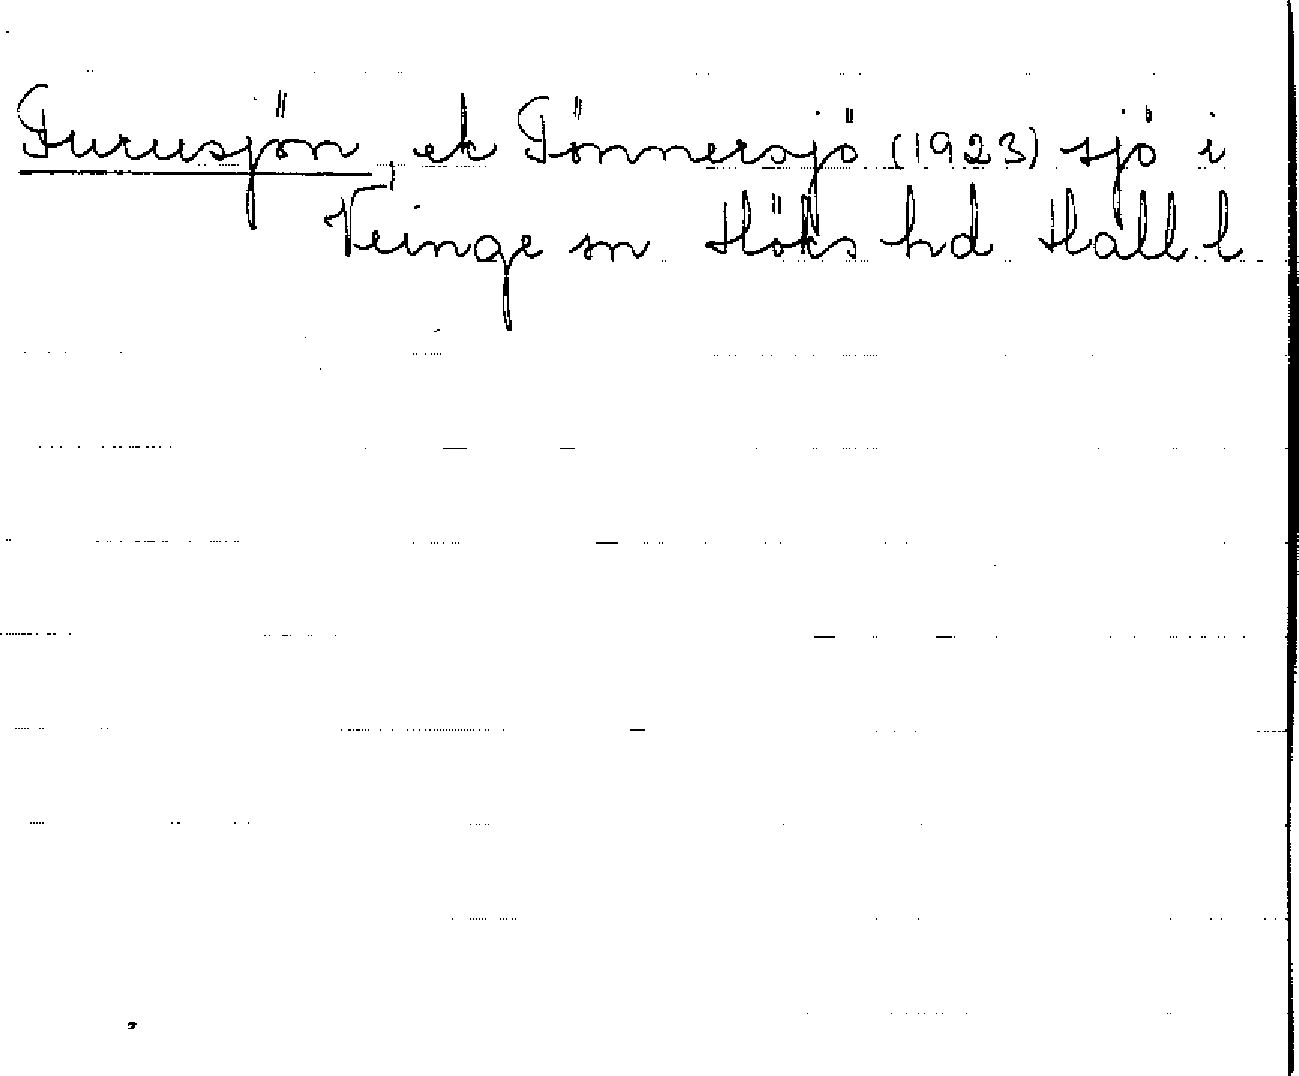 Furusjön, ek Tönnersjö (1923) sjö i
Veinge sn Höks hd Hall l